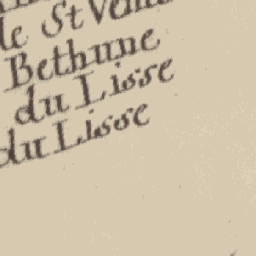 de St Venan
Bethune
du Lisse
du Lisse